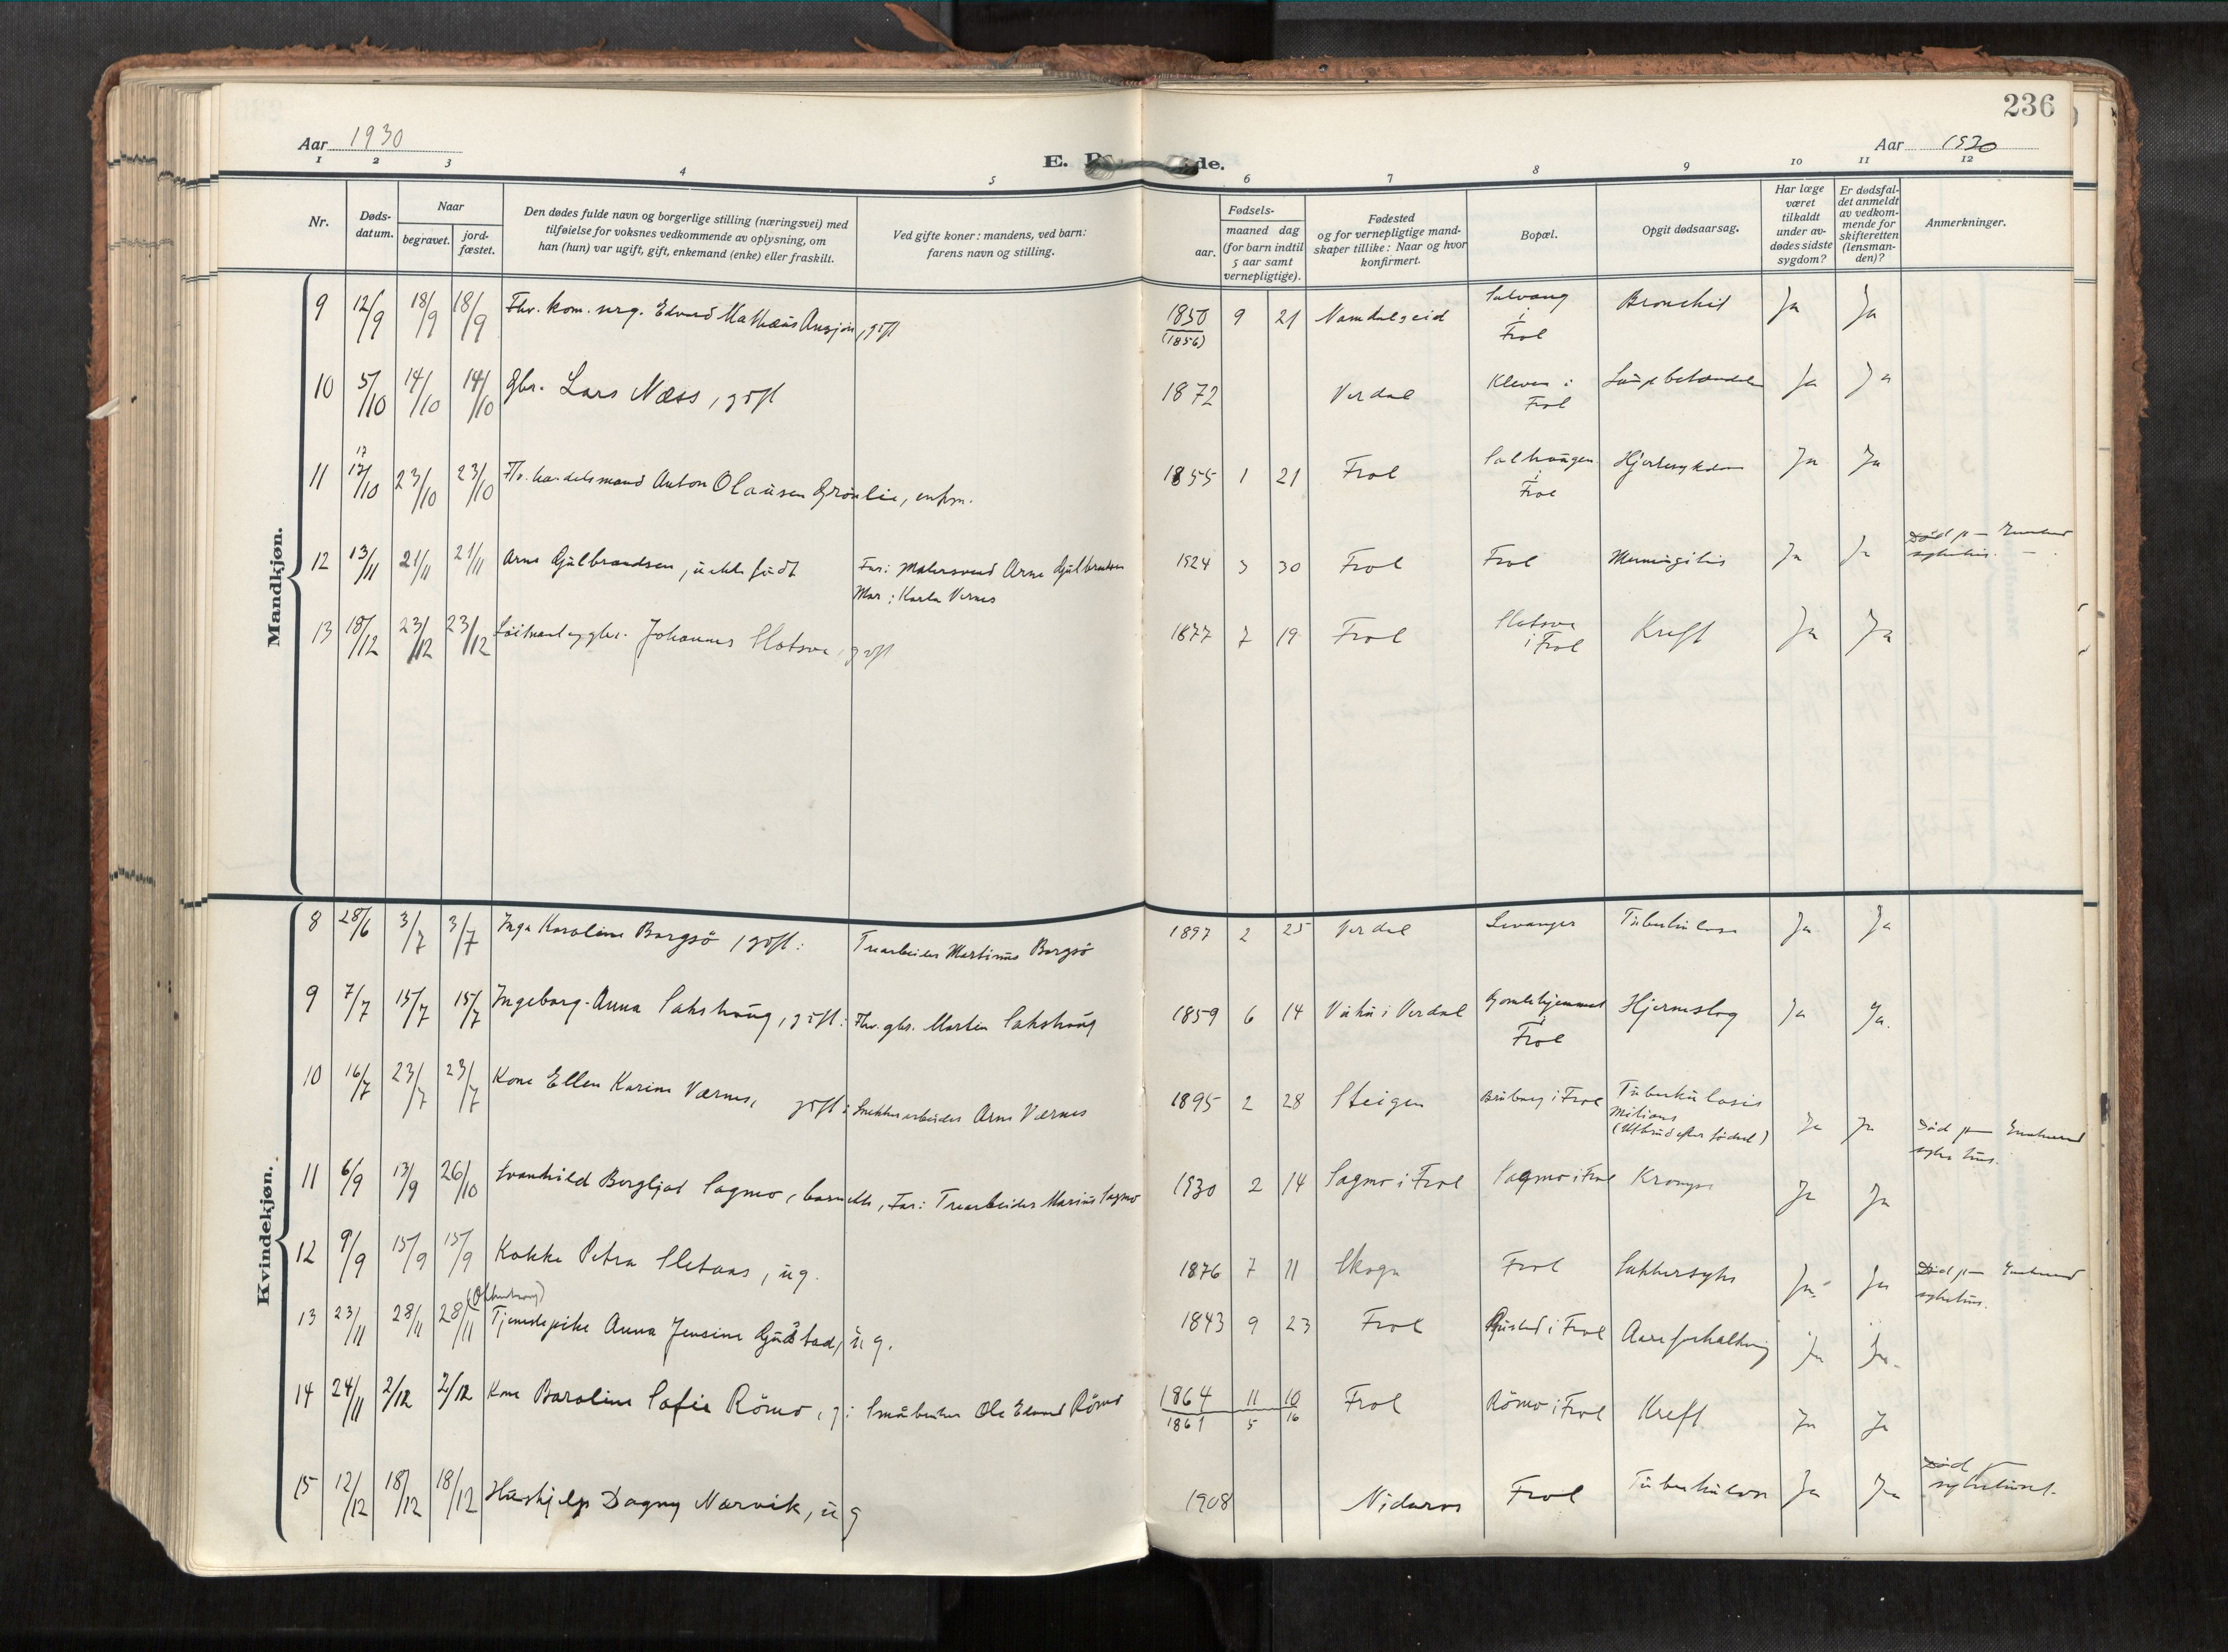 236
Aar 1930
E. D de.
Aar 1930
1 2 3 4 5 6 7 8 9 10 11 12
Nr.
Døds-
datum.
Naar
begravet.
jord-
fæstet.
Den dødes fulde navn og borgerlige stilling (næringsvei) med
tilføielse for voksnes vedkommende av oplysning, om
han (hun) var ugift, gift, enkemand (enke) eller fraskilt.
Ved gifte koner: mandens, ved barn:
farens navn og stilling.
Fødsels-
aar.
maaned dag
(for barn indtil
5 aar samt
vernepligtige).
Fødested
og for vernepligtige mand-
skaper tillike: Naar og hvor
konfirmert.
Bopæl.
Opgit dødsaarsag.
Har læge
været
tilkaldt
under av-
dødes sidste
sygdom?
Er dødsfal-
det anmeldt
av vedkom-
mende for
skifteretten
(lensman-
den)?
Anmerkninger.
Mandkjøn.
9 12/9 18/9 18/9 Fhv. kom. Edvard Mathæus, gift 1850 9 21 Namdalseid Bronchit Ja Ja
(1856)
i
Frol
10 5/10 14/10 14/10 Gbr. Lars Næss, gift 1872 Verdal Kleven i Ja Ja
Frol
17
11 17/10 23/10 23/10 Fhv. handelsmand Anton Olausen Grønlie, enkm. 1855 1 21 Frol Salhaugen Hjertesykdom Ja Ja
i
Frol
12 13/11 21/11 21/11 Arne Gulbrandsen, uekte født Far: Malersvend Arne Gulbrandsen 1924 3 30 Frol Frol Meningitis Ja Ja Død på Innherred
sykehus.
Mor: Karla Vernes
13 18/12 23/12 23/12 Johannes Slotsve, gift 1877 7 19 Frol Slotsve Kreft Ja Ja
i Frol
Kvindekjøn.
8 28/6 3/7 3/7 Inga Karoline Borgsö, gift: Trearbeider Martinus Borgsö 1897 2 25 Verdal Levanger Tuberkulose Ja Ja
9 7/7 15/7 15/7 Ingeborg-Anna Sakshaug, gift: Fhv. gbr. Martin Sakshaug 1859 6 14 Vuku i Verdal Gamlehjemmet Hjerneslag Ja Ja.
i
Frol
10 16/7 23/7 23/7 Kone Ellen Karine Værnes, gift: Snekkerarbeider Arne Værnes 1895 2 28 Steigen Bruborg i Frol Tuberkulosis Ja Ja Død på Innherred
sykehus.
Miliaris
(Utbrud efter fødsel)
11 6/9 13/9 26/10 Svanhild Bergljot Sagmo, barn ekte, Far: Trearbeider Marius Sagmo 1930 2 14 Sagmo i Frol Sagmo i Frol Ja Ja
12 9/9 15/9 15/9 Kokke Petra Sletaas, ug. 1876 7 11 Skogn Frol Sukkersyke Ja Ja Død på Innherred
sykehus.
13 23/11 28/11 28/11 Tjenestepike Anna Jensine Gjustad, ug. 1843 9 23 Frol Gjustad i Frol Aareforkalkning Ja Ja.
14 24/11 2/12 2/12 Kone Baroline Sofie Römo, g: Småbruker Ole Edvard Römo 1864 11 10 Frol Römo i Frol Kreft Ja Ja
1861 5 16
15 12/12 18/12 18/12 Hushjelp Dagny Narvik, ug 1908 Nidaros Frol Tuberkulose Ja Ja Død
sykehuset.